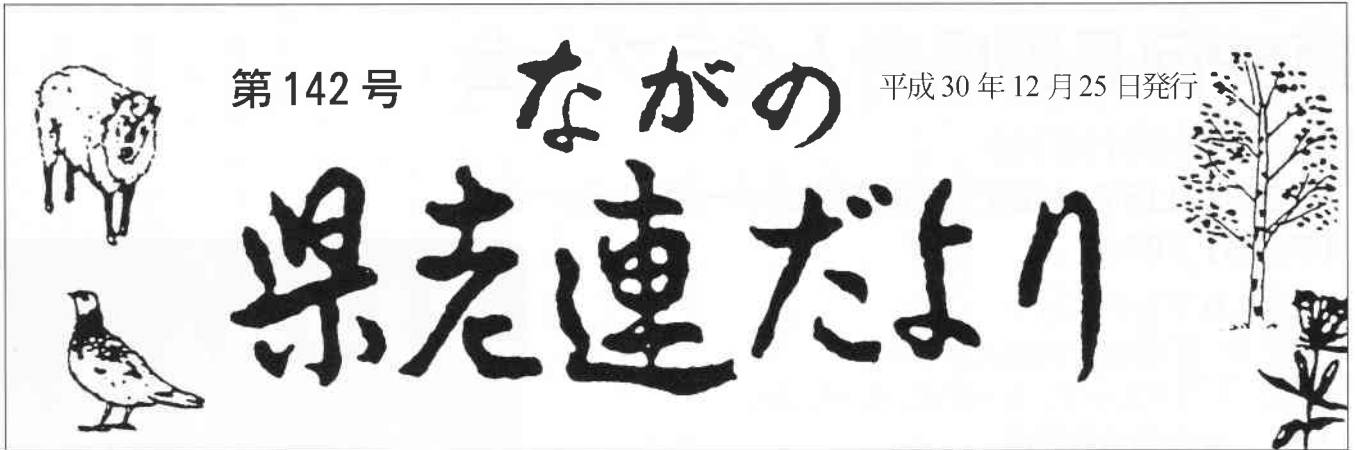 第142号
ながの
平成30年12月25日発行
県老連だより